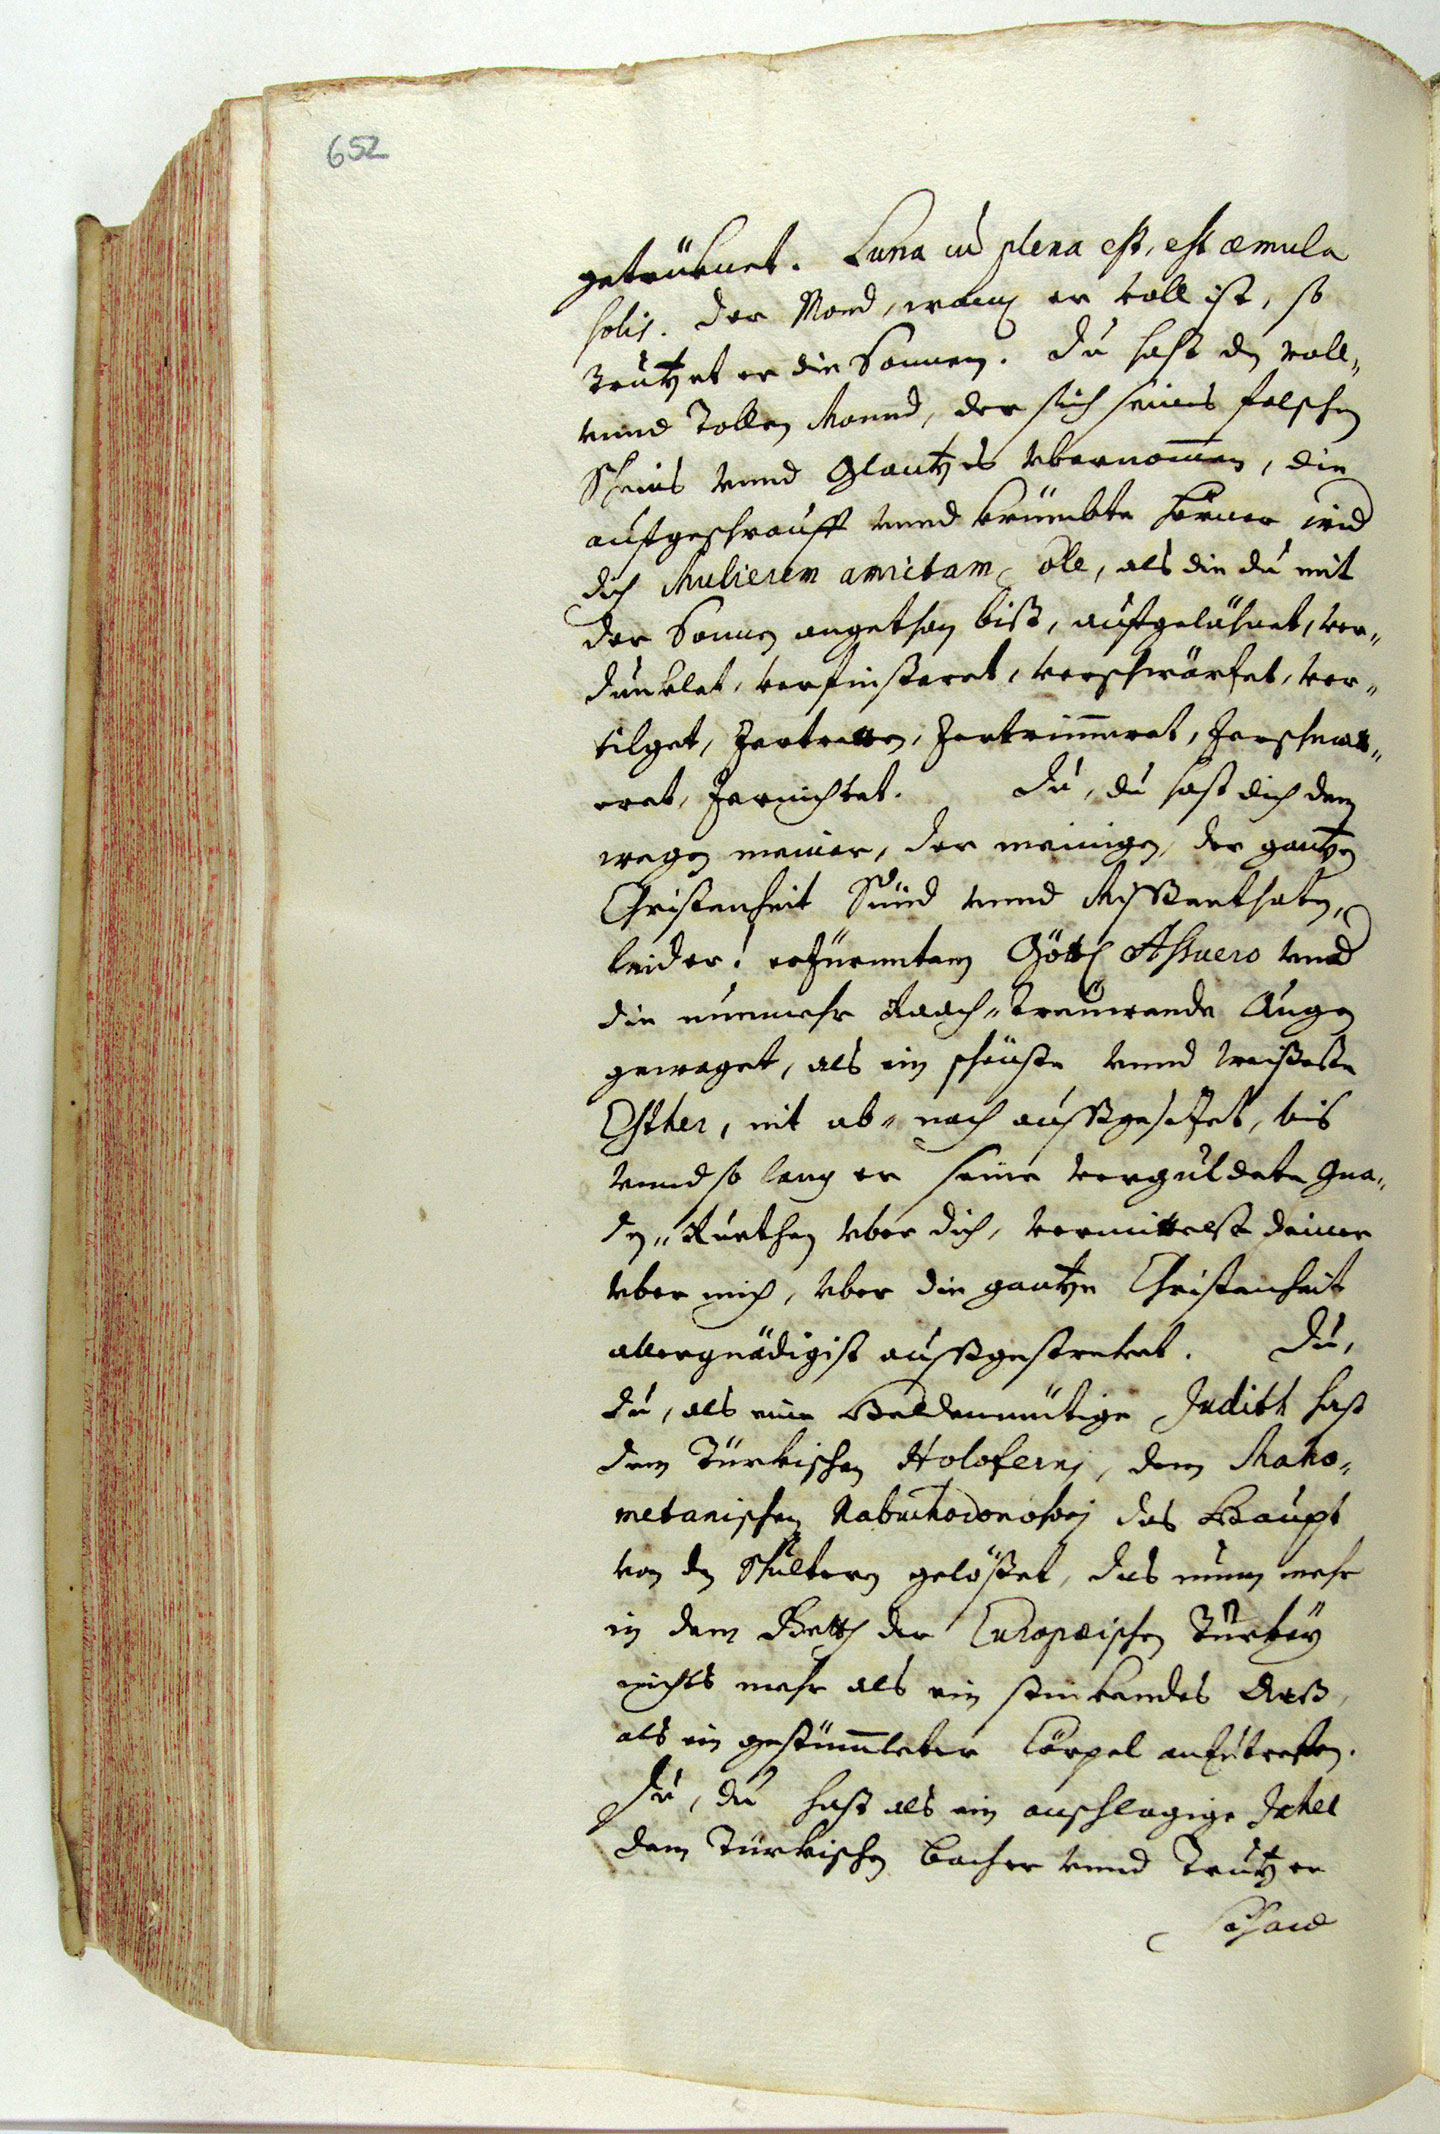 652
getrüknet. Luna cu plena est, est æmula
solis. der Mond, wann er voll ist, so
trutzet er die Sonnen. du hast den voll-
vnnd tollen Monnd, der sich seines falschen
Scheins vnnd Glantzes vbernom̄en, die
auffgeschraufft vnnd krümbte hörner wid
dich Mulierem amictam sole, als die du mit
der Sonnen angethan bist, auffgelähnet, ver-
dunklet, verfinsteret, verschwärtzet, ver-
tilget, zertretten, zertrim̄eret, zerschmett-
eret, zernichtet. Du, du hast dich dem
wegen meiner, der meinigen, der gantzen
Christenheit Sünd vnnd Missethaten,
leider! erzürnntem Göttl Assuero vnnd
die nunmehr Raach-trauwende Augen
gewaget, als ein schönste vnnd weiseste
Esther, nit ab- noch aussgesetzet, bis
vnnd so lang er seine verguldete Gna-
den-Ruethen vber dich, vermittelst deiner
vber mich, vber die gantze Christenheit
allergnädigist aussgestreket. Du,
du, als eine Heldenmütige Judith hast
dem Türkischen Holoferni, dem Maho-
metanischen Nabuchodonosori das Haupt
von den Schultern gelösset, das nunn mehr
in dem Beth der Europæischen Türkey
nichts mehr als ein stinkendes Aass,
als ein gestüm̄leter Cörpel anzutreffen.
Du, du hast als ein anschlagige Jahel
dem Türkischen bocher vnnd Trutzer